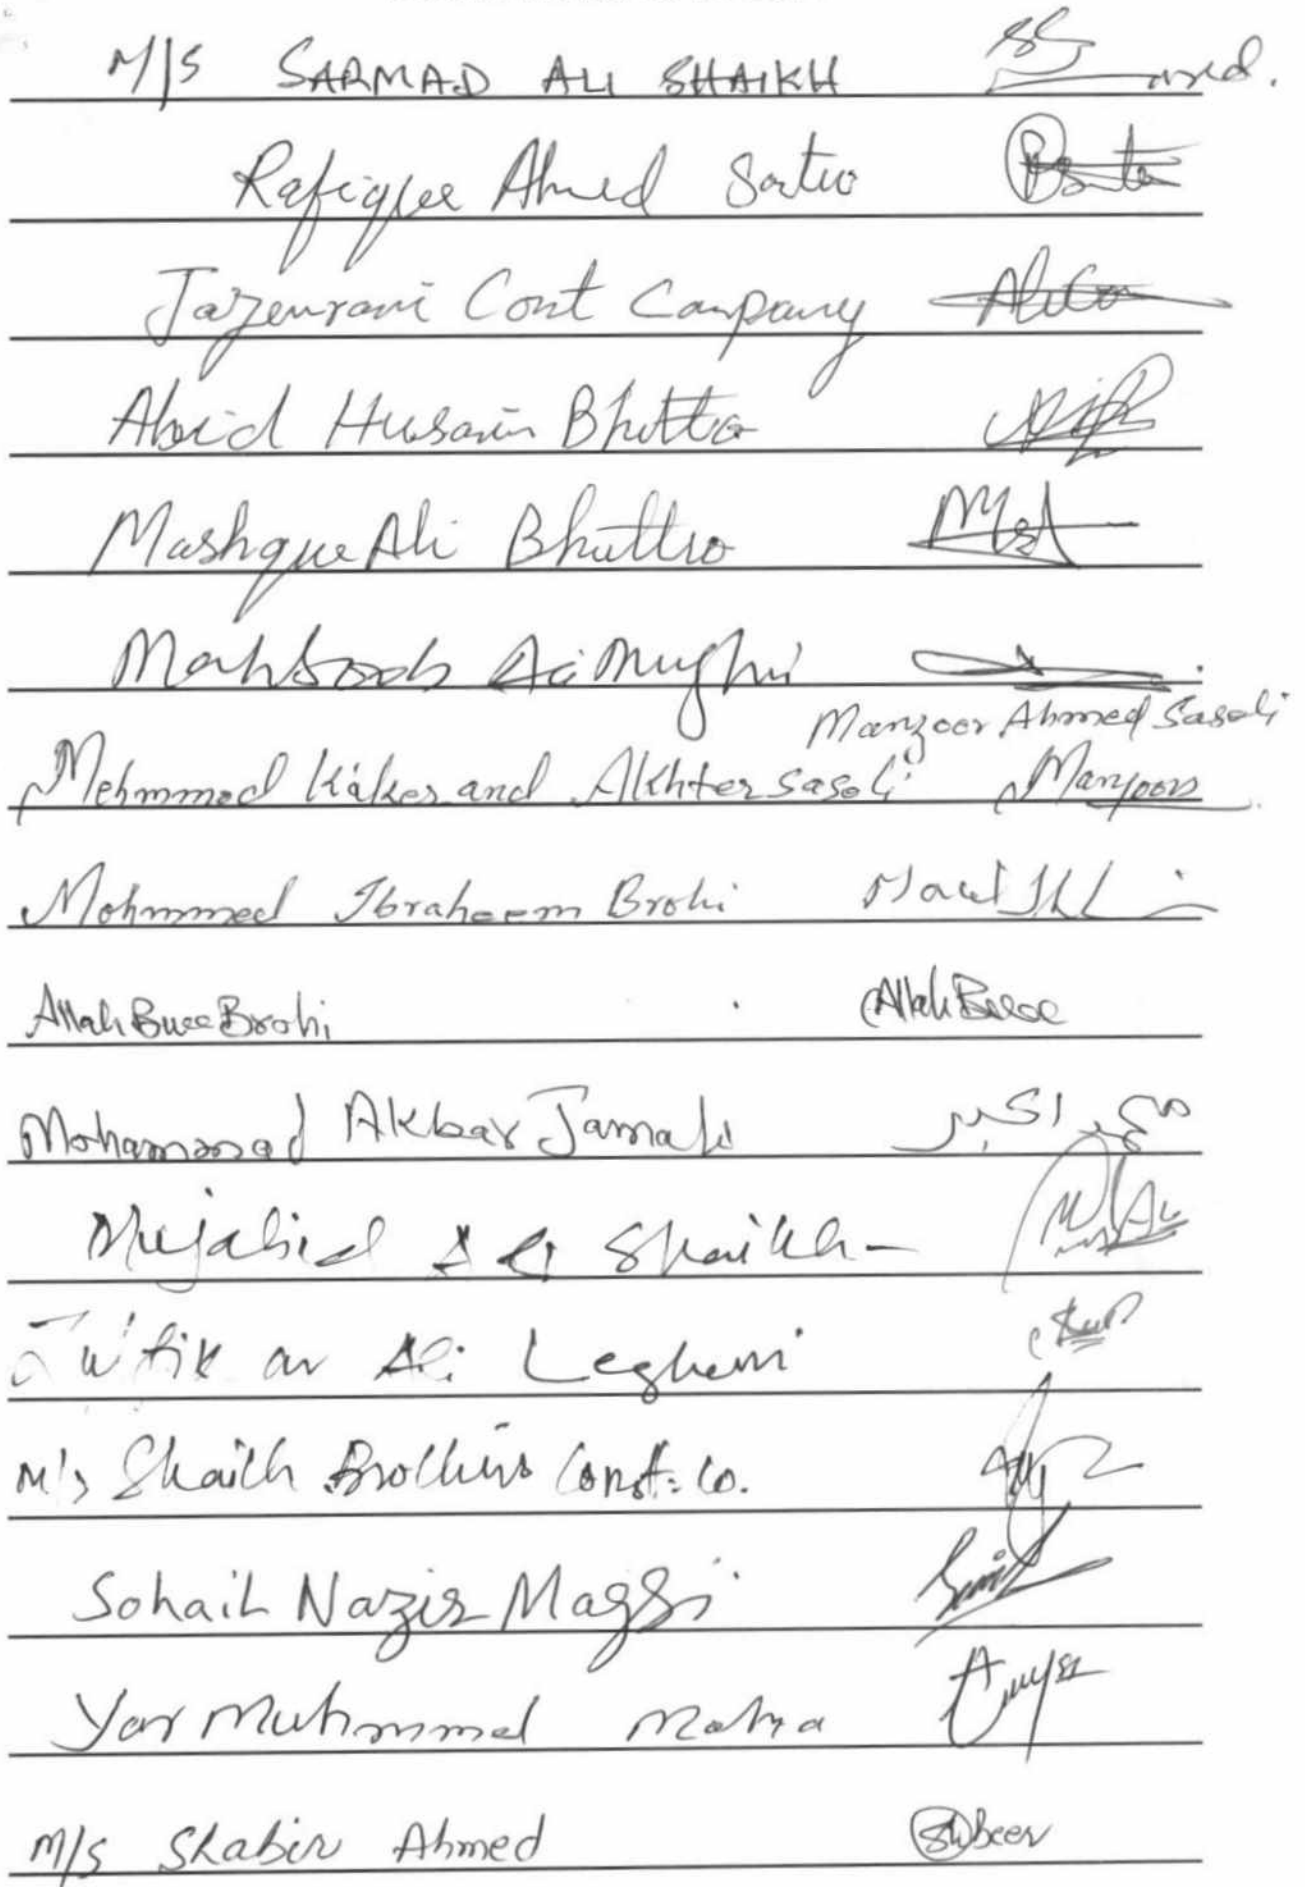 M/S SARMAD ALI SHAIKH
Rafique Ahmed Soatio
Jazenrani Cont Company
Abid Husain Bhutto
Mashque Ali Bhuttro
Mahboob Ali Mughri
Manzoor Ahmed Sasoli
Mehmmod Kaker and Akhter Sasoli Manzoor
Mohmmed Ibraheem Brohi
Allah Buce Brohi Allah Buce
Mohammad Akbar Jamali محمد اکبر
Mujahid Ali Shaikh
Zulfikar Ali Leghari
M/s Shaikh Brothers Const: Co.
Sohail Nazir Magsi
Yar Muhmmed
M/S Shabir Ahmed Shbeer